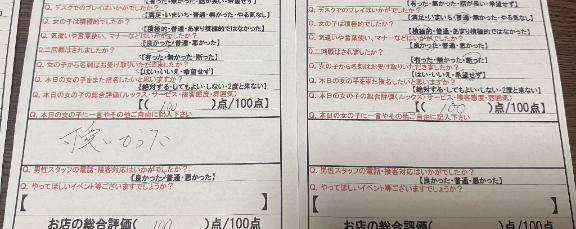 Q. デスクでのプレイはいかがでしたか?
【満足・いまいち・普通・無かった・やる気なし】
Q. 女の子は積極的でしたか?
【積極的・普通・あまり積極的ではなかった】
Q. 気遣いや言葉使い、マナーなどはいかがでしたか?
【良かった・普通・悪かった】
Q. 二回戦はされましたか?
【有った・無かった・断った】
Q. 女の子から名刺はお受け取りいただきましたか?
【はい・いいえ・希望せず】
Q. 本日の女の子をまた指名したいと思いますか?
【絶対する・してもよい・しない・2度と来ない】
Q. 本日の女の子の総合評価(ルックス・サービス・接客態度・雰囲気)
【( 100 )点/100点】
Q. 本日の女の子に一言やその他ご自由に記入下さい
可愛いかった
Q. 男性スタッフの電話・接客対応はいかがでしたか?
【良かった・普通・悪かった】
Q. やってほしいイベント等ございますでしょうか?
【 】
お店の総合評価( 100 )点/100点
Q. デスクでのプレイはいかがでしたか?
【満足・いまいち・普通・無かった・やる気なし】
Q. 女の子は積極的でしたか?
【積極的・普通・あまり積極的ではなかった】
Q. 気遣いや言葉使い、マナーなどはいかがでしたか?
【良かった・普通・悪かった】
Q. 二回戦はされましたか?
【有った・無かった・断った】
Q. 女の子から名刺はお受け取りいただきましたか?
【はい・いいえ・希望せず】
Q. 本日の女の子をまた指名したいと思いますか?
【絶対する・してもよい・しない・2度と来ない】
Q. 本日の女の子の総合評価(ルックス・サービス・接客態度・雰囲気)
【( 100 )点/100点】
Q. 本日の女の子に一言やその他ご自由に記入下さい
Q. 男性スタッフの電話・接客対応はいかがでしたか?
【良かった・普通・悪かった】
Q. やってほしいイベント等ございますでしょうか?
【 】
お店の総合評価( )点/100点